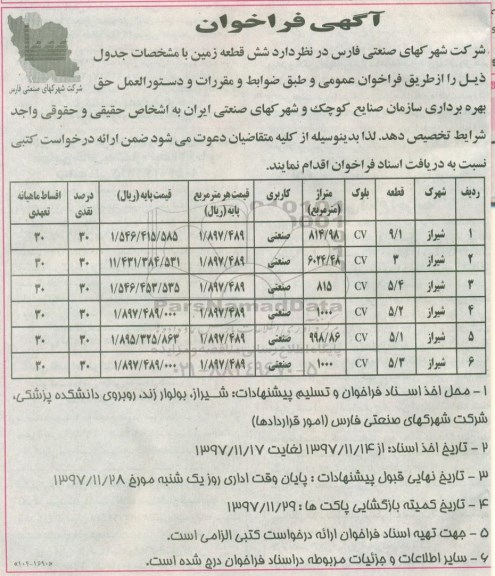 آگهی فراخوان
شرکت شهرکهای صنعتی فارس
شرکت شهرکهای صنعتی فارس در نظر دارد شش قطعه زمین با مشخصات جدول
ذیل را از طریق فراخوان عمومی و طبق ضوابط و مقررات و دستورالعمل حق
بهره برداری سازمان صنایع کوچک و شهرکهای صنعتی ایران به اشخاص حقیقی و حقوقی واجد
شرایط تخصیص دهد. لذا بدینوسیله از کلیه متقاضیان دعوت می شود ضمن ارائه درخواست کتبی
نسبت به دریافت اسناد فراخوان اقدام نمایند.
ردیف شهرک قطعه بلوک متراژ (مترمربع) کاربری قیمت هر مترمربع پایه (ریال) قیمت پایه (ریال) درصد نقدی اقساط ماهیانه تعهدی
۱ شیراز ۹/۱ CV ۸۱۴/۹۸ صنعتی ۱/۸۹۷/۴۸۹ ۱/۵۴۶/۴۱۵/۵۸۵ ۳۰ ۳۰
۲ شیراز ۳ CV ۶۰۲۴/۴۸ صنعتی ۱/۸۹۷/۴۸۹ ۱۱/۴۳۱/۳۸۴/۵۳۱ ۳۰ ۳۰
۳ شیراز ۵/۴ CV ۸۱۵ صنعتی ۱/۸۹۷/۴۸۹ ۱/۵۴۶/۴۵۳/۵۳۵ ۳۰ ۳۰
۴ شیراز ۵/۲ CV ۱۰۰۰ صنعتی ۱/۸۹۷/۴۸۹ ۱/۸۹۷/۴۸۹/۰۰۰ ۳۰ ۳۰
۵ شیراز ۵/۱ CV ۹۹۸/۸۶ صنعتی ۱/۸۹۷/۴۸۹ ۱/۸۹۵/۳۲۵/۸۶۳ ۳۰ ۳۰
۶ شیراز ۵/۳ CV ۱۰۰۰ صنعتی ۱/۸۹۷/۴۸۹ ۱/۸۹۷/۴۸۹/۰۰۰ ۳۰ ۳۰
ParsNamadData
۱ - محل اخذ اسناد فراخوان و تسلیم پیشنهادات: شیراز، بولوار زند، روبروی دانشکده پزشکی،
شرکت شهرکهای صنعتی فارس (امور قراردادها)
۲ - تاریخ اخذ اسناد: از ۱۳۹۷/۱۱/۱۴ لغایت ۱۳۹۷/۱۱/۱۷
۳ - تاریخ نهایی قبول پیشنهادات : پایان وقت اداری روز یک شنبه مورخ ۱۳۹۷/۱۱/۲۸
۴ - تاریخ کمیته بازگشایی پاکت ها : ۱۳۹۷/۱۱/۲۹
۵ - جهت تهیه اسناد فراخوان ارائه درخواست کتبی الزامی است.
۶ - سایر اطلاعات و جزئیات مربوطه در اسناد فراخوان درج شده است.